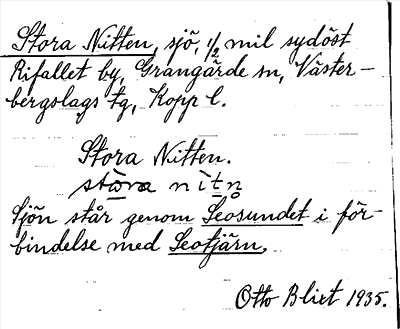 Stora Nitten, sjö, 1/2 mil sydöst
Rifallet by, Grangärde sn, Väster-
bergslags tg, Kopp l.
Stora Nitten.
stora nitn
Sjön står genom Seosundet i för-
bindelse med Seotjärn.
Otto Blixt 1935.